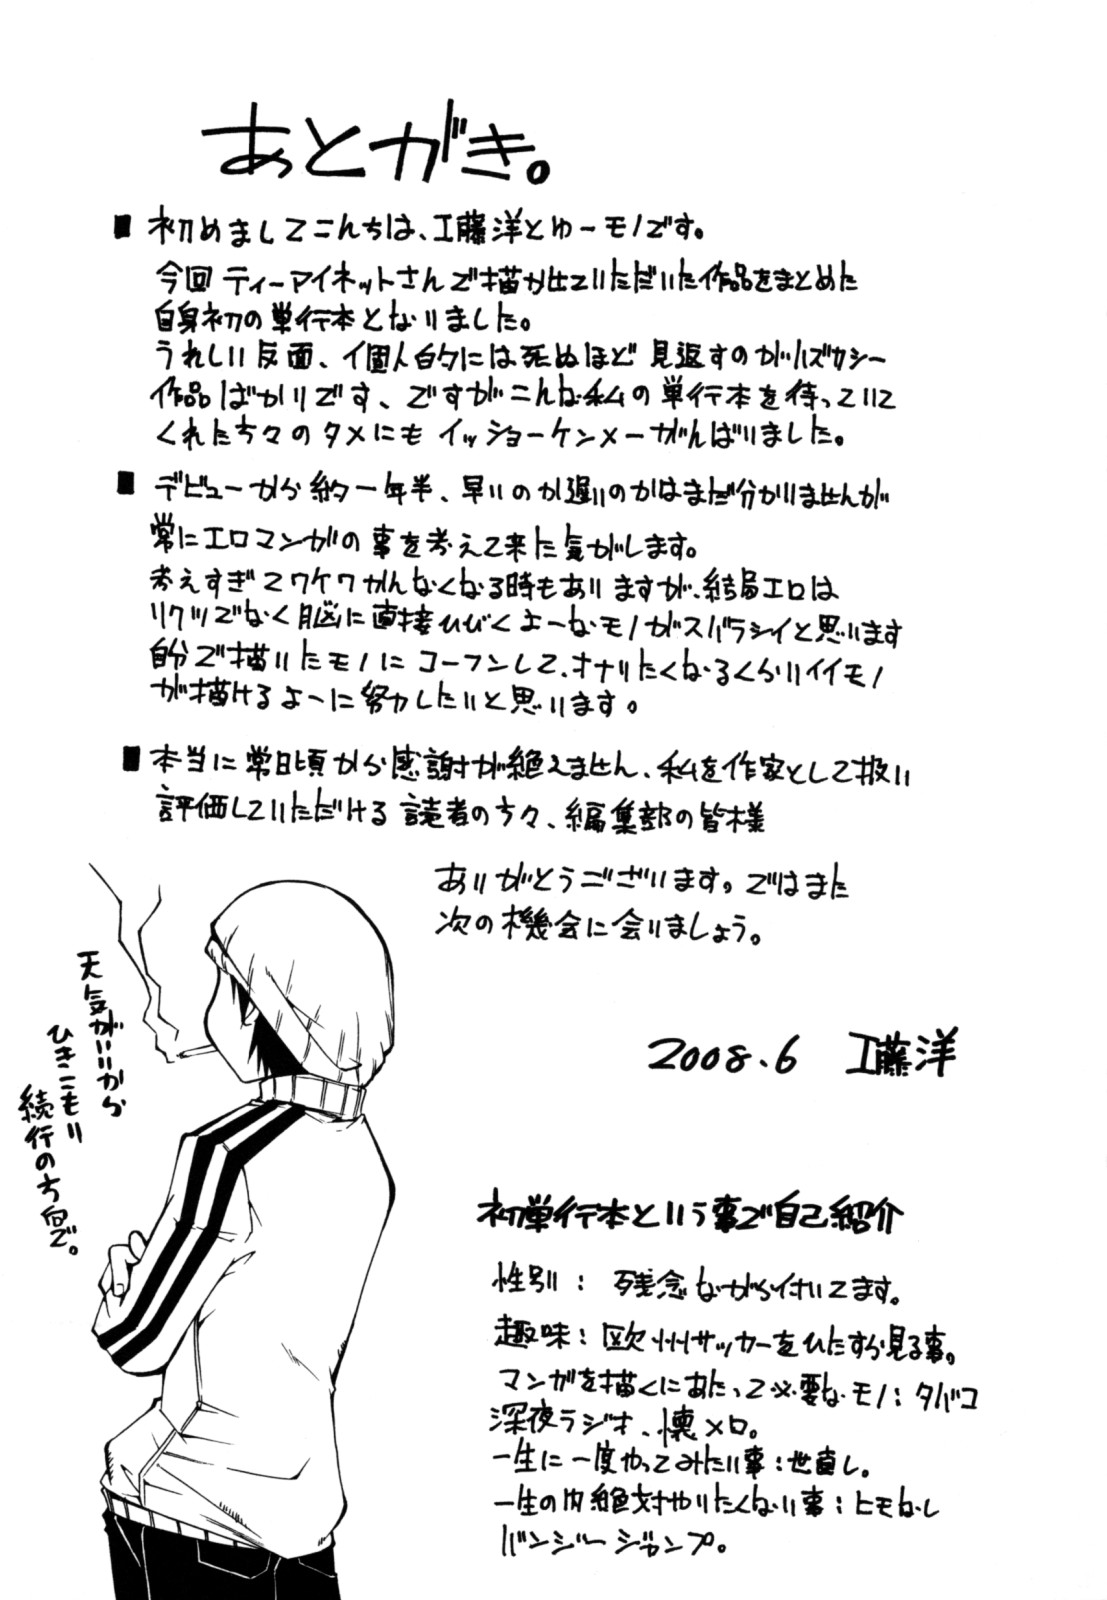 あとがき。
■ 初めましてこんちは、工藤洋とゆーモノです。
今回 ティーアイネットさんで描かせていただいた作品をまとめた
自身初の単行本となりました。
うれしい反面、個人的には死ぬほど見返すのがハズカシー
作品ばかりです、ですがこんな私の単行本を待っていて
くれた方々のタメにも イッショーケンメーがんばりました。
■ デビューから約一年半、早いのか遅いのかはまだ分かりませんが
常にエロマンガの事を考えて来た気がします。
考えすぎてワケワカんなくなる時もありますが、結局エロは
リクツでなく脳に直接ひびくよーなモノがスバラシイと思います
自分で描いたモノにコーフンして、オナりたくなるくらいイイモノ
が描けるよーに努力したいと思います。
■ 本当に常日頃から感謝が絶えません、私を作家として扱い
評価していただける読者の方々、編集部の皆様
ありがとうございます。ではまた
次の機会に会いましょう。
天気がいいから
ひきこもり
続行の方向で。
2008.6 工藤洋
初単行本という事で自己紹介
性別: 残念ながら付いてます。
趣味: 欧州サッカーをひたすら見る事。
マンガを描くにあたって必要なモノ: タバコ
深夜ラジオ、懐メロ。
一生に一度やってみたい事: 世直し。
一生の内絶対やりたくない事: ヒモなし
バンジージャンプ。